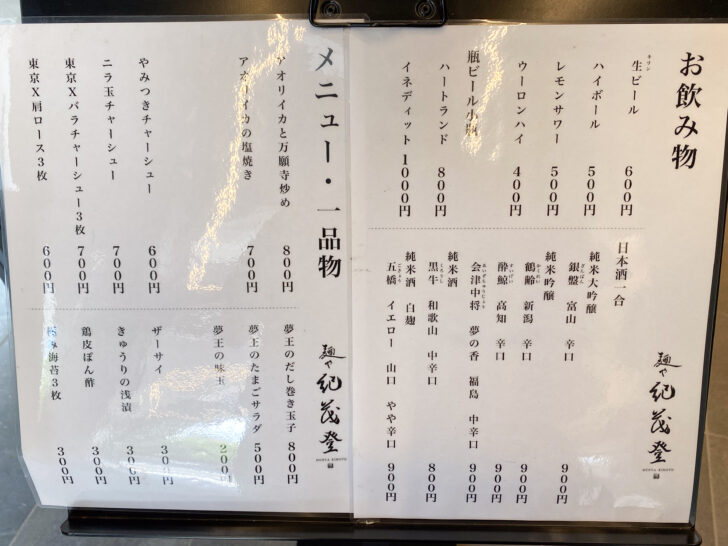 お飲み物
キリン
生ビール 600円
ハイボール 500円
レモンサワー 500円
ウーロンハイ 400円
瓶ビール小瓶
ハートランド 800円
イネディット 1000円
日本酒一合
純米大吟醸
ぎんばん
銀盤 富山 辛口 900円
純米吟醸
かくれい
鶴齢 新潟 辛口 900円
すいげい
酔鯨 高知 辛口 900円
あいづちゅうじょう
会津中将 夢の香 福島 中辛口 900円
純米酒
くろうし
黒牛 和歌山 中辛口 800円
純米酒 白麹
ごきょう
五橋 イエロー 山口 やや辛口 900円
麺や 紀茂登
MENYA KIMOTO
メニュー・一品物
アオリイカと万願寺炒め 800円
アオリイカの塩焼き 700円
やみつきチャーシュー 600円
ニラ玉チャーシュー 700円
東京Xバラチャーシュー3枚 700円
東京X肩ロース3枚 600円
夢王のだし巻き玉子 800円
夢王のたまごサラダ 500円
夢王の味玉 200円
ザーサイ 300円
きゅうりの浅漬 300円
鶏皮ぽん酢 300円
海苔3枚 300円
麺や 紀茂登
MENYA KIMOTO